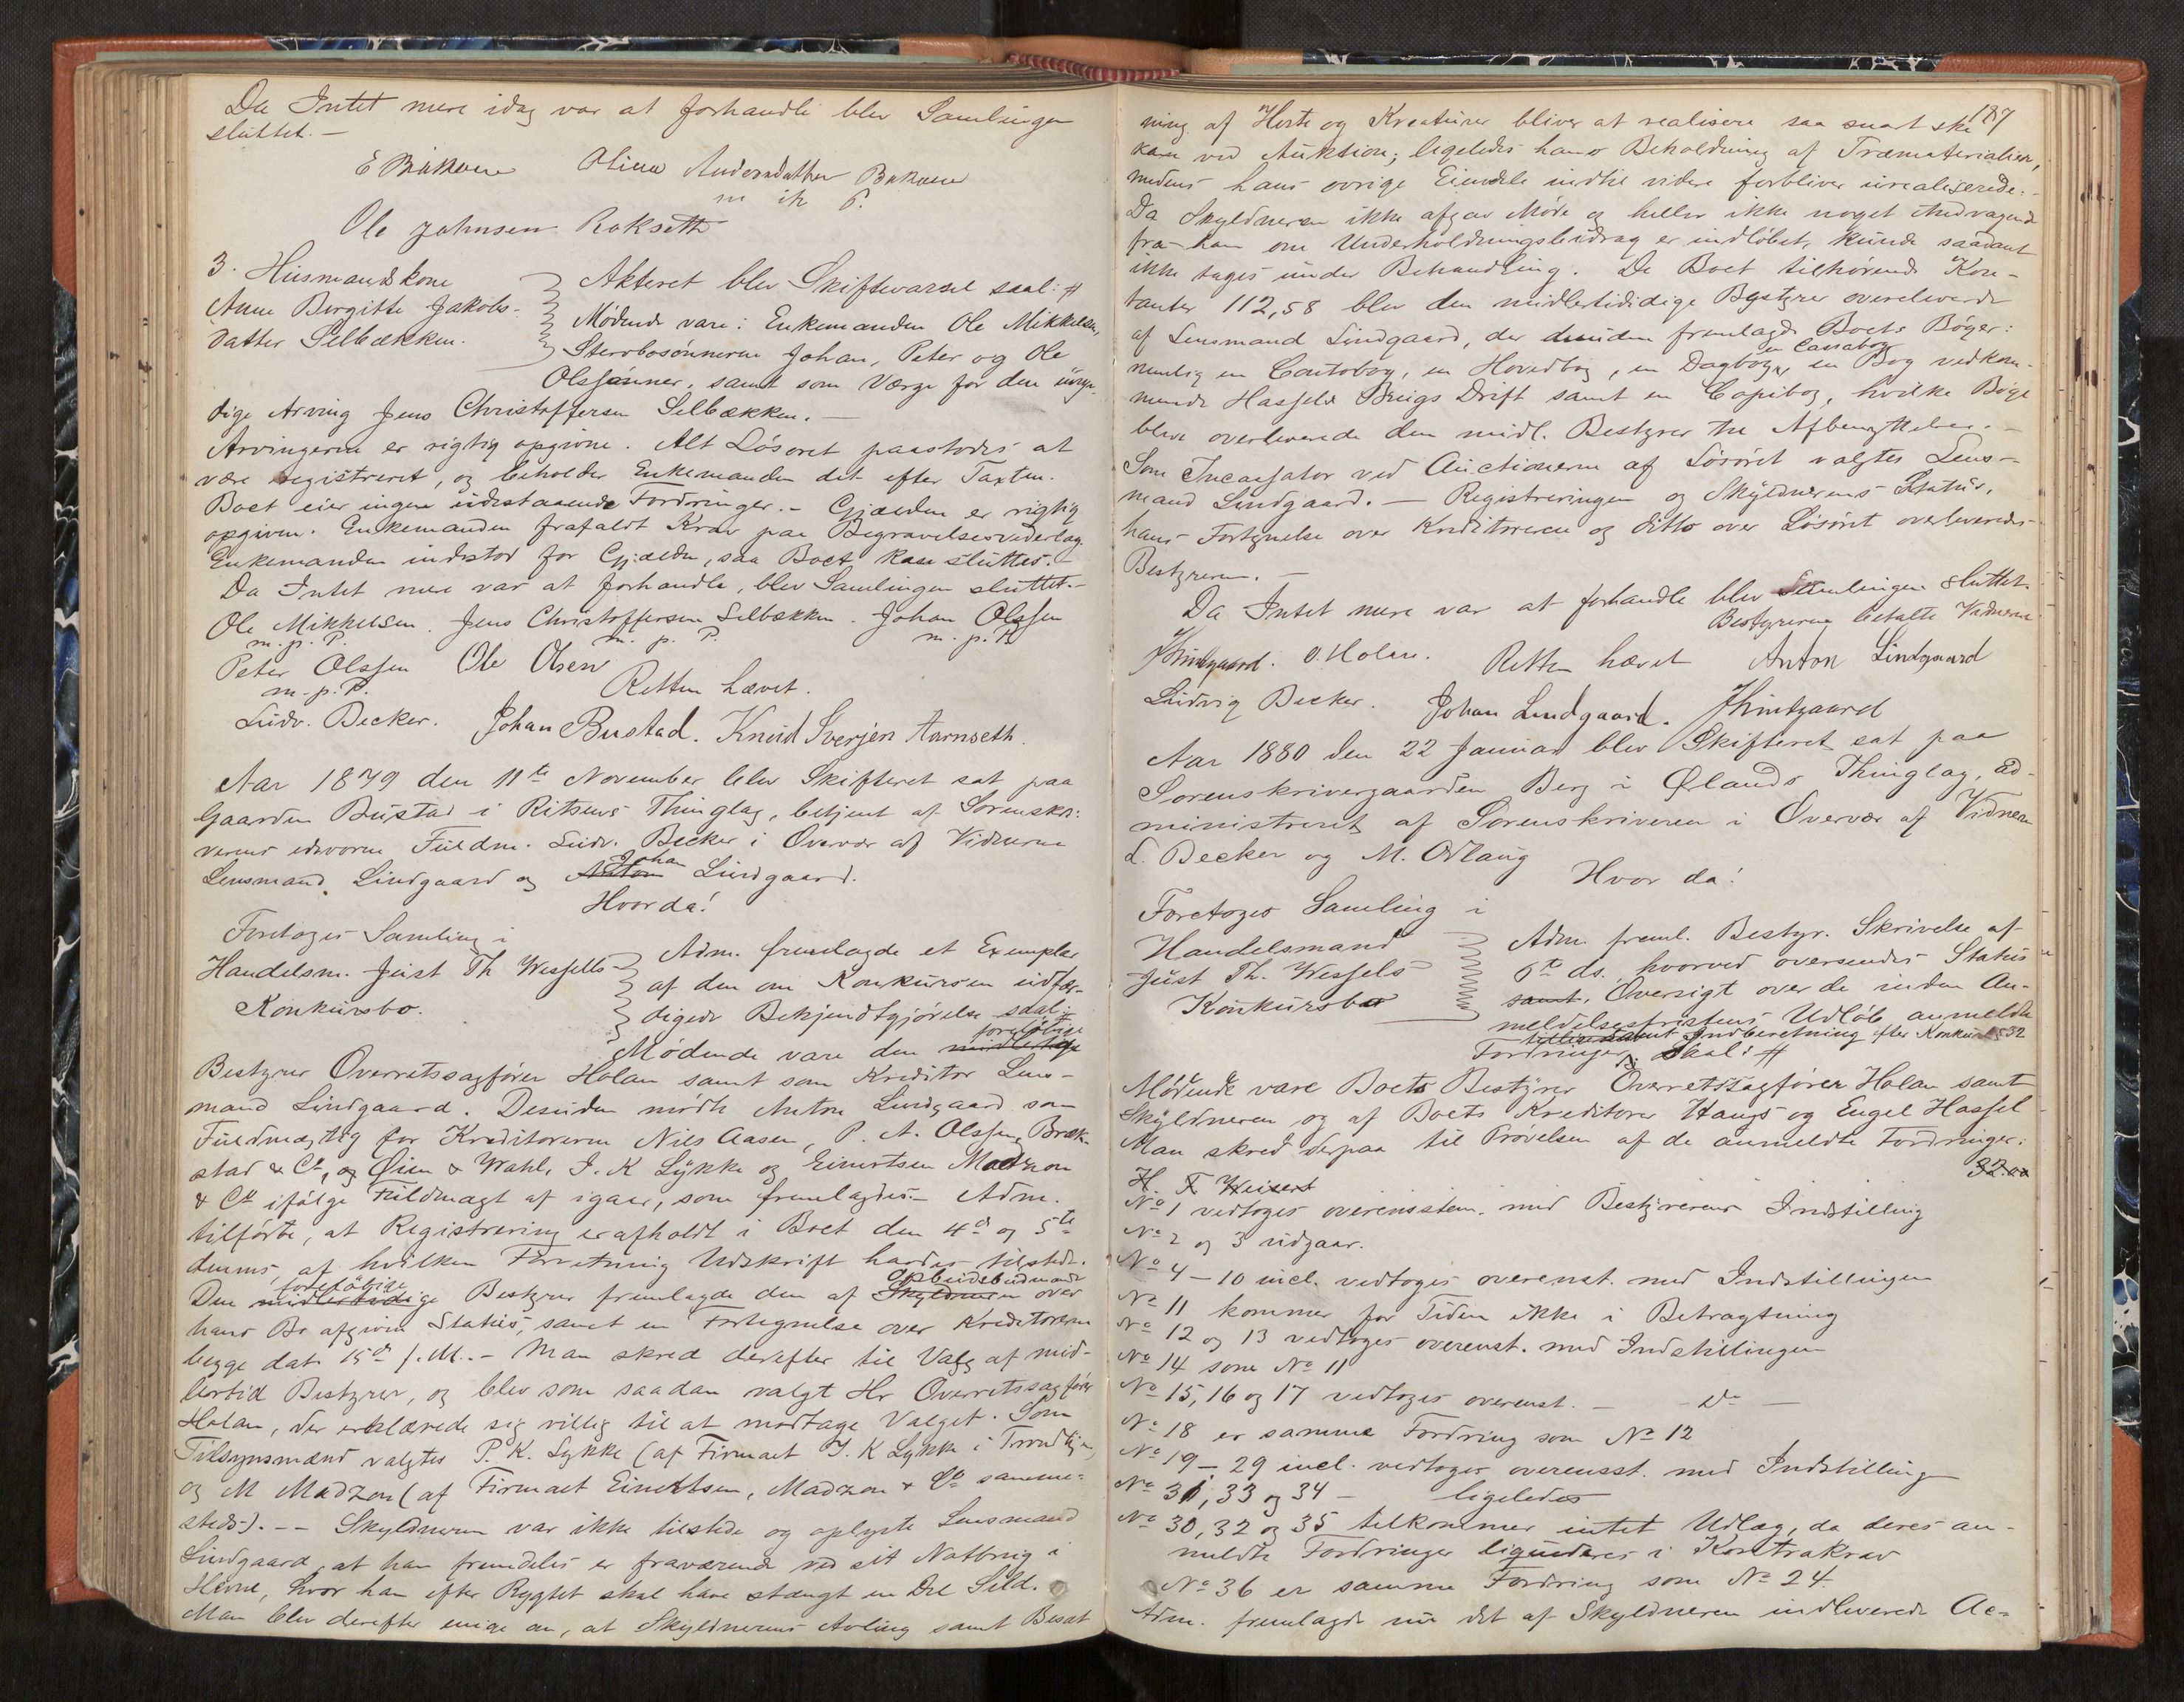 Da Intet mere idag var at forhandle blev Samlingen
sluttet. —
E Bakken Oline Andersdatter Bakken
m ik P.
Ole Johnsen Roksetth
3. Husmandskone
Anne Birgitte Jakobs-
datter Selbækken.
Akteret blev Skiftevarsel saal: #
Mødende vare: Enkemanden Ole Mikkelsen,
Stervbosønnerne Johan, Peter og Ole
Olssønner, samt som Værge for den umyn-
dige Arving Jens Christoffersen Selbækken. —
Arvingerne er rigtig opgivne. Alt Løsøret paastodes at
være registreret, og beholder Enkemanden det efter Taxten.
Boet eier ingen udestaaende Fordringer. – Gjælden er rigtig
opgiven. Enkemanden frafaldt Krav paa Begravelsesvederlag.
Enkemanden indestod for Gjælden, saa Boet kan sluttes. –
Da Intet mere var at forhandle, blev Samlingen sluttet. –
Ole Mikkelsen. Jens Christoffersen Selbækken. Johan Olssen
m. p. P. m. p. P. m. p. P.
Peter Olssen Ole Olsen
m. p. P. Retten hævet.
Ludv. Becker. Johan Bustad. Knud Sverjen Aarnseth.
Aar 1879 den 11te November blev Skifteret sat paa
Gaarden Bustad i Ritsens Thinglag, betjent af Sorenskri-
verens edsvorne Fuldm. Ludv. Becker i Overvær af Vidnerne
Lensmand Lindgaard og Anton Johan Lindgaard.
Hvor da!
Foretoges Samling i
Handelsm. Just Th Wessels
Konkursbo.
Adm. fremlagde et Exemplar
af den om Konkursen udfær-
digede Bekjendtgjørelse saal. #
Mødende vare den midlertidige foreløbige
Bestyrer Overretssagfører Holan samt som Kreditor Lens-
mand Lindgaard. Desuden mødte Anton Lindgaard som
Fuldmægtig for Kreditorerne Nils Aasen, P. A. Olssen, Bræk-
stad & Co, og Øien & Wahl, I. K Lykke og Einertsen Madzon
& Co ifølge Fuldmagt af igaar, som fremlagdes – Adm.
tilførte, at Registrering er afholdt i Boet den 4de og 5te
dennes, af hvilken Forretning Udskrift havdes tilstede.
Den midlertidige foreløbige Bestyrer fremlagde den af Skyldneren Opbudsbudmanden over
hans Bo afgivne Status, samt en Fortegnelse over Kreditorerne
begge dat. 15de f. M. – Man skred derefter til Valg af mid-
lertid Bestyrer, og blev som saadan valgt Hr Overretssagfører
Holan, der erklærede sig villig til at modtage Valget. Som
Tilsynsmænd valgtes P. K. Lykke (af Firmaet I. K Lykke i Trondhjem,
og M Madzon (af Firmaet Einertsen, Madzon & Co samme-
steds). – – Skyldneren var ikke tilstede og oplyste Lensmand
Lindgaard, at han fremdeles er fraværende ved sit Notbrug i
Hevne, hvor han efter Rygtet skal have stængt en Del Sild.
Man blev derefter enige om, at Skyldnerens Avling samt Besæt
187
ning af Heste og Kreaturer bliver at realisere saa snart ske
kan ved Auktion; ligeledes hans Beholdning af Træmaterialier,
medens hans øvrige Eiendele indtil videre forbliver urealiserede. –
Da Skyldneren ikke afgav Møde og heller ikke noget Andragende
fra ham om Underholdningsbidrag er indløbet, kunde saadant
ikke tages under Behandling. De Boet tilhørende Kon-
tanter 112,58 blev den midlertididige Bestyrer overleverede
af Lensmand Lindgaard, der desuden fremlagde Boets Bøger:
nemlig en Contobog, en Hovedbog, en Dagbog, en Cassabog en Bog vedkom-
mende Hassels Brugs Drift samt en Copibog, hvilke Bøger
bleve overleverede den midl. Bestyrer til Afbenyttelse. –
Som Incassator ved Auctionerne af Løsøret valgtes Lens-
mand Lindgaard. — Registreringen og Skyldnerens Status,
hans Fortegnelse over Kreditorerne og ditto over Løsøret overleveredes
Bestyreren. –
Da Intet mere var at forhandle blev Samlingen sluttet.
Bestyreren betalte Vidnerne
JLindgaard. O. Holan. Retten hævet Anton Lindgaard
Ludvig Becker. Johan Lindgaard. JLindgaard
Aar 1880 den 22 Januar blev Skifteret sat paa
Sorenskrivergaarden Berg i Ørlands Thinglag, ad-
ministreret af Sorenskriveren i Overvær af Vidnerne
L. Becker og M. Odlaug
Hvor da!
Foretoges Samling i
Handelsmand
Just Th. Wessels
Konkursbo
Adm. freml. Bestyr. Skrivelse af
6te ds., hvorved oversendes Status
samt, Oversigt over de inden An-
meldelsesfristens Udløb anmeldte
tilligemed Indberetning efter Konkursl. § 32
Fordringer, saal: #
Mødende vare Boets Bestyrer Overretssagfører Holan samt
Skyldneren og af Boets Kreditorer Haugs og Engel Hassel
Man skred derpaa til Prøvelsen af de anmeldte Fordringer:
H. F. Weisert 32.00
No 1 vedtoges overensstem. med Bestyrerens Indstilling
No 2 og 3 udgaar.
No 4 – 10 incl. vedtoges overenst. med Indstillingen
No 11 kommer for Tiden ikke i Betragtning
No 12 og 13 vedtoges overenst. med Indstillingen
No 14 som No 11
No 15, 16 og 17 vedtoges overenst. – do –
No 18 er samme Fordring som No 12
No 19 – 29 incl. vedtoges overensst. med Indstilling
No 31, 33 og 34 – ligeledes
No 30, 32 og 35 tilkommer intet Udlæg, da deres an-
meldte Fordringer liquideres i Kontrakrav
No 36 er samme Fordring som No 24.
Adm. fremlagde nu det af Skyldneren indleverede Ac-